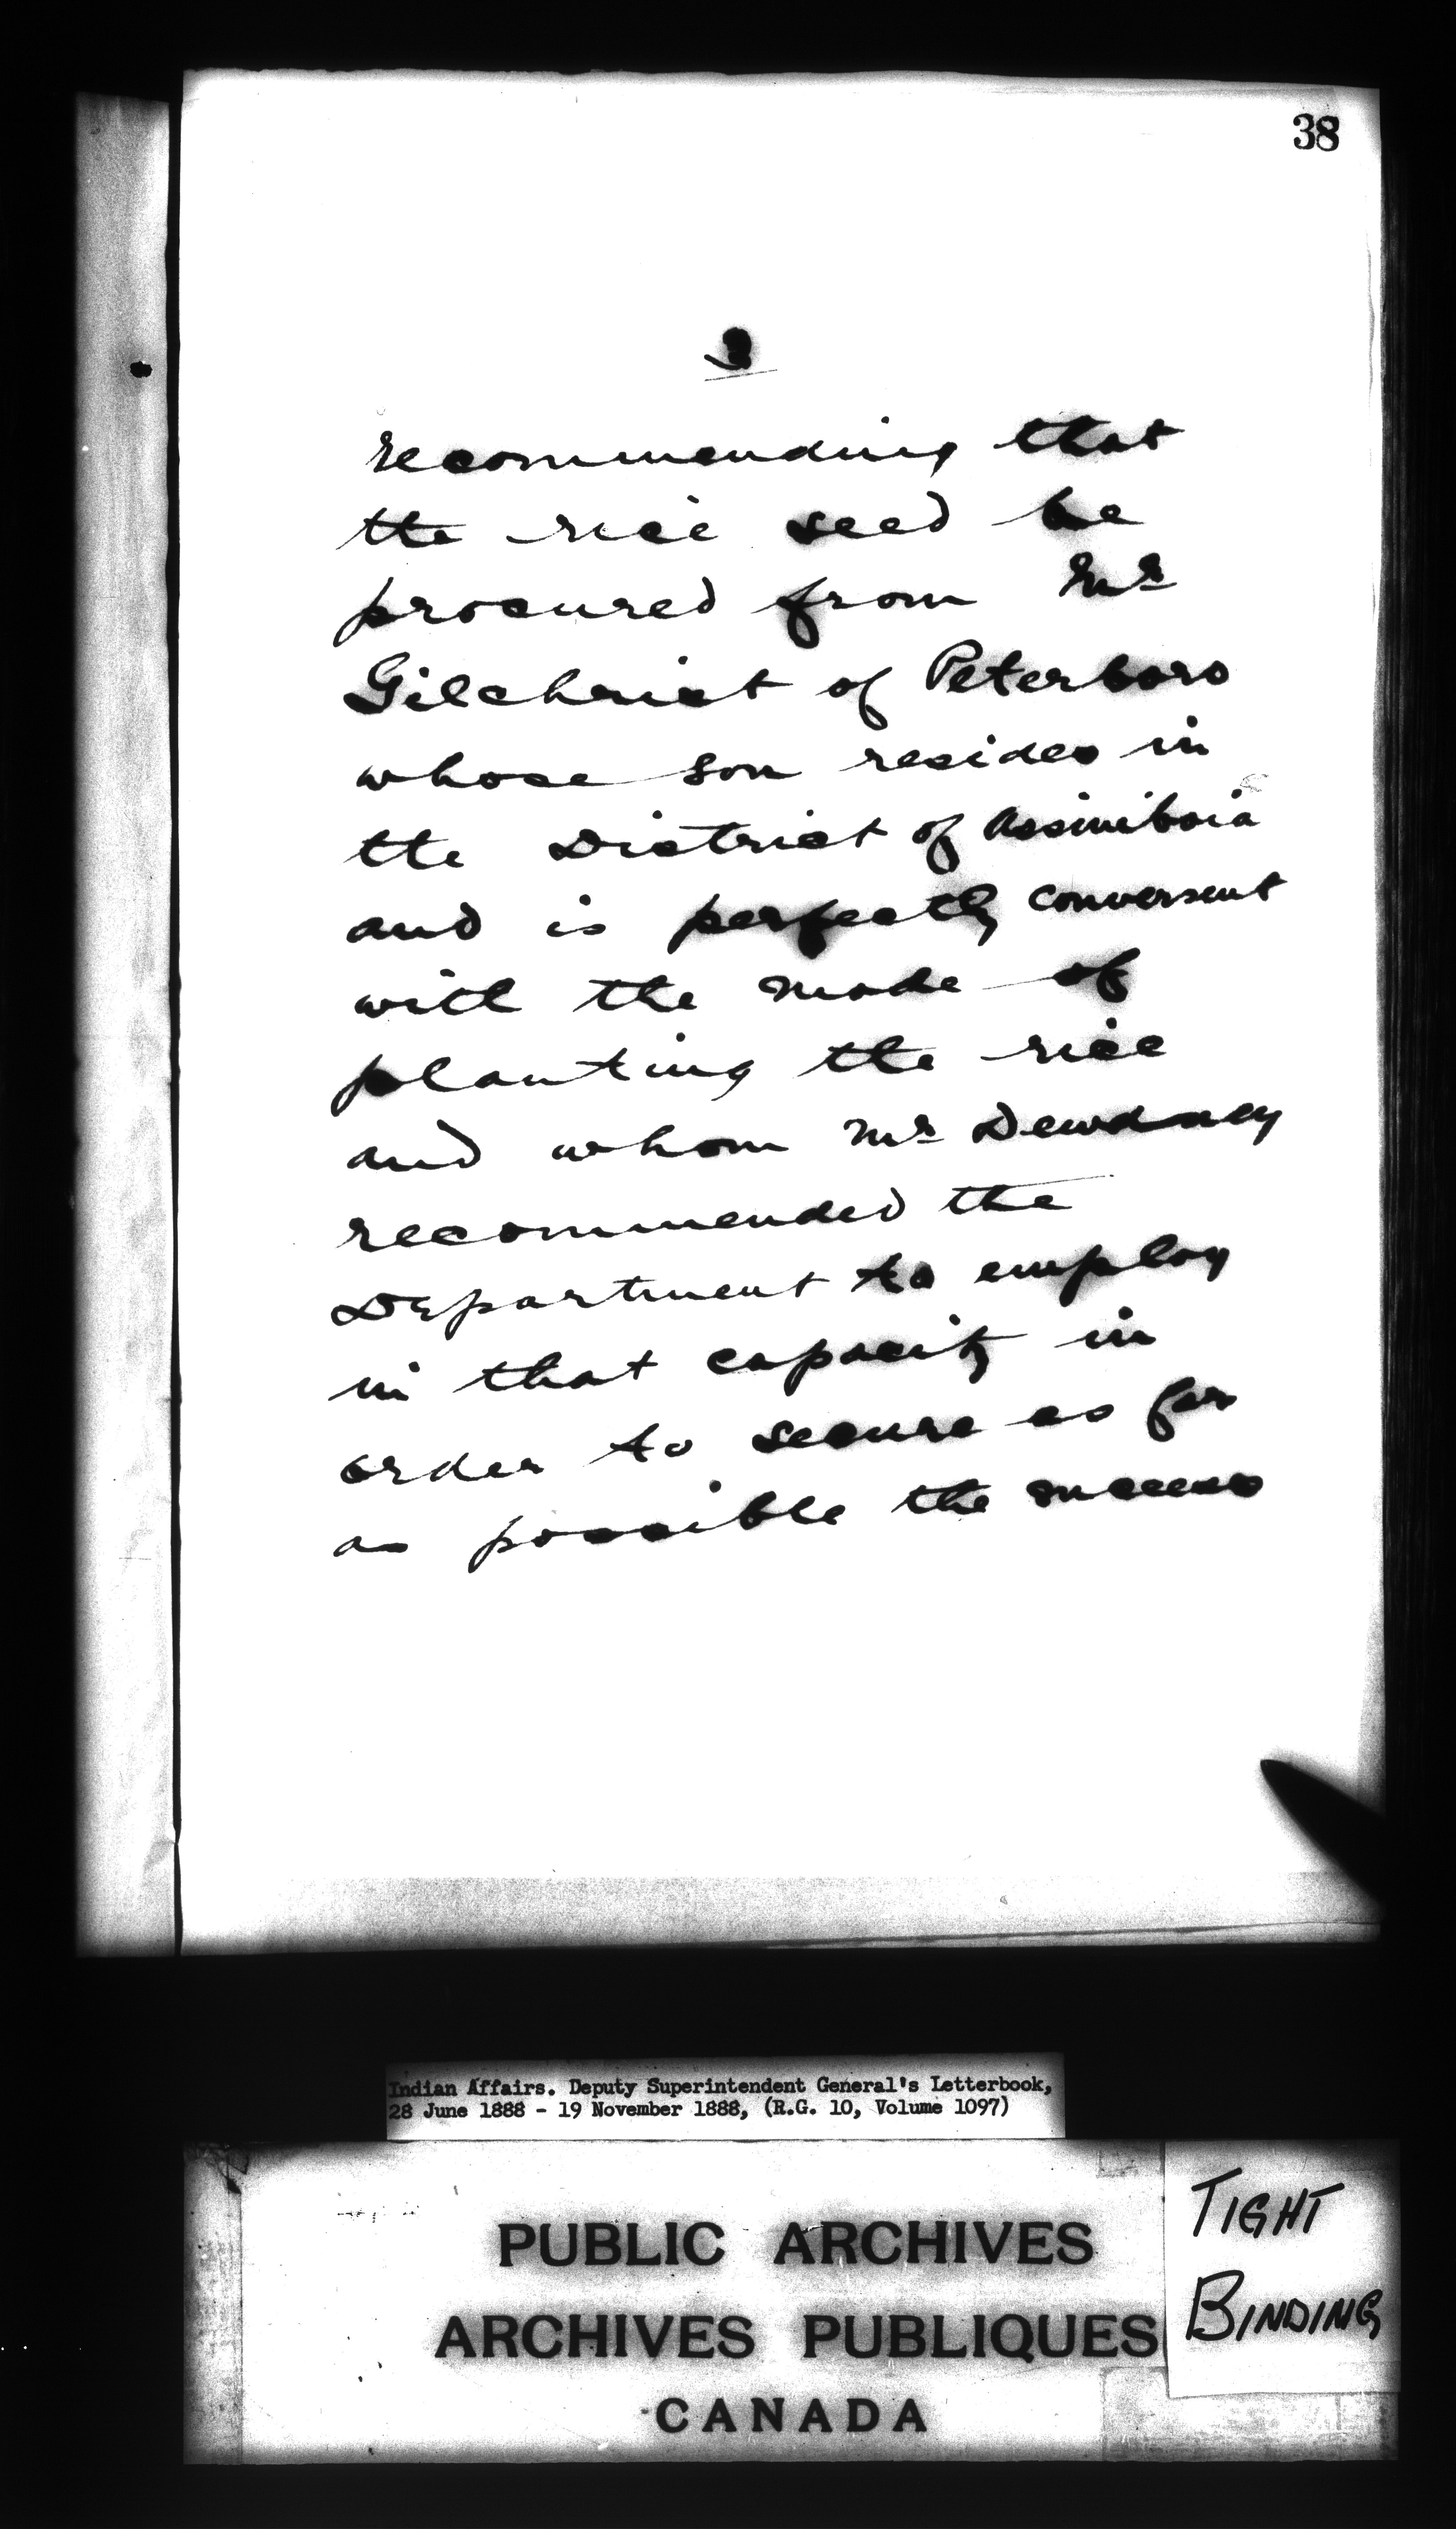 38
3
recommending that
the rice seed be
procured from Mr
Gilchrist of Peterboro
whose son resides in
the District of Assiniboia
and is perfectly conversent
with the mode of
planting the rice
and whom Mr Dewdney
recommended the
Department to employ
in that capacity in
order to secure as far
as possible the success
Indian Affairs. Deputy Superintendent General's Letterbook,
28 June 1888 - 19 November 1888, (R.G. 10, Volume 1097)
PUBLIC ARCHIVES
ARCHIVES PUBLIQUES
CANADA
TIGHT
BINDING